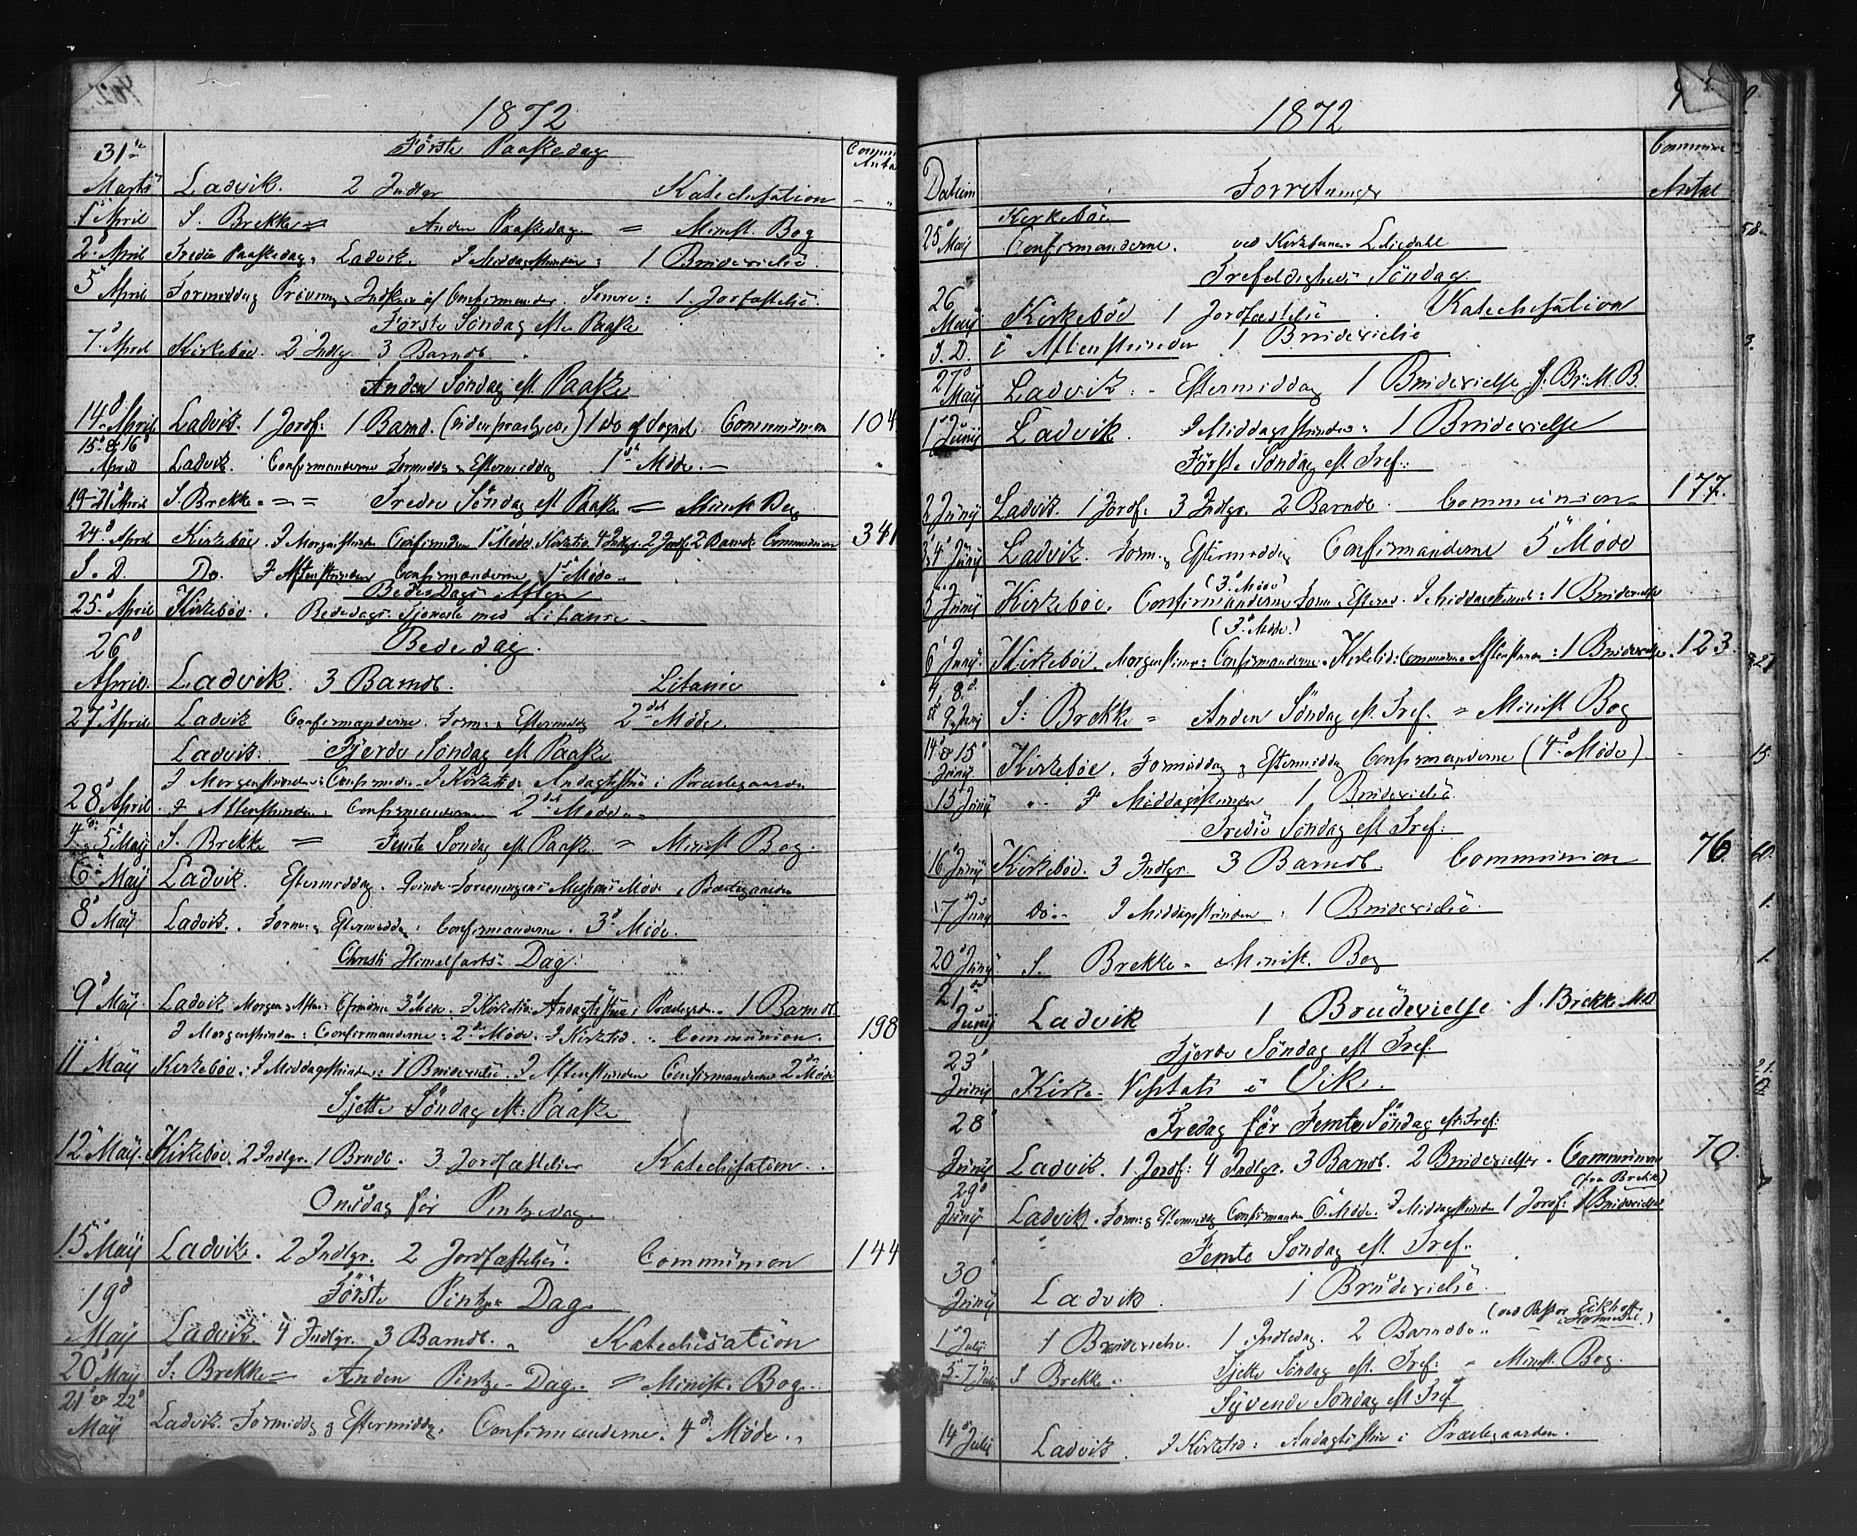 1872
Første Paaskedag
Commun Antal
31te Marts Ladvik. 2 Indlgr Katechisation
1ste April S. Brekke = Anden Paaskedag = Minist. Bog
2d April Tredie Paaskedag. Ladvik. I Middagsstunden: 1 Brudevielse
5 April Formiddag Prøvning & Indskr. af Confirmander. Senere: 1. Jordfæstelse
Første Søndag efter Paaske
7d April Kirkebøe. 2 Indlgr. 3 Barnd.
Anden Søndag eft Paaske
14d April Ladvik. 1 Jordf: 1 Barnd. 1 do Communion 104
15d & 16d April Ladvik. Confirmanderne Formiddag & Eftermiddag 1ste Møde. —
19-21d April S. Brekke. = = Tredie Søndag eft Paaske = Minist Bog
24d April Kirkebøe. I Morgenstunden Confirmdne 1ste Møde. Kirketid 4 Indlgr. 2 Jordf 2 Barnd. Communion 341
S. D. Do. I Aftenstunden Confirmanderne 1ste Møde.
Bededags Aften
25d April Kirkebøe. Bededags-Tjeneste med Litanie
Bededag.
26d April. Ladvik. 3 Barndb. Litanie
27d April Ladvik Confirmanderne. Form. & Eftermiddg 2det Møde.
Ladvik. Fjerde Søndag eft Paaske
I Morgenstunden: Confirmdne. I Kirketid Andagtstime i Præstegaarden
28d April. I Aftenstunden: Confirmanderne 2det Møde.
4d-5d Maij S. Brekke = Femte Søndag eft Paaske = Minist Bog.
6d Maij Ladvik. Eftermiddag. Qvinde-Foreningens Missions Møde i Præstegaarden
8d Maij Ladvik. Form. & Eftermiddg: Confirmanderne. 3d Møde.
Christi Himelfarts Dag.
9d Maij. Ladvik Morgen & Aften: Cfmdrne 3d Møde. I Kirketid: Andagtstime i Præstegrden. 1 Barndb.
I Morgenstunden: Confirmanderne: 2det Møde. I Kirketid. Communion. 198
11 Maij Kirkebøe: I Middagsstunden: 1 Brudevielse. I Aftenstunden Confirmanderne 2det Møde
Sjette Søndag eft: Paaske
12d Maij. Kirkebøe. 2 Indlgr. 1 Brndb. 3 Jordfæstelser Katechisation.
Onsdag før Pintsedag.
15d Maij Ladvik. 2 Indlgr. 2 Jordfæstelser. Communion 144
Første Pintse Dag.
19d Maij Ladvik. 4 Indlgr. 3 Barndb. Katechisation
20d Maij S: Brekke = Anden Pintse-Dag. = Minist. Bog.
21d & 22d Maij Ladvik. Formiddg & Eftermiddg. Confirmanderne. 4d Møde.
1872
Datum Forretninger Commun Antal
25d Maij Kirkebøe Confirmanderne. ved Kirkesanger
Trefoldigheds Søndag
26 Maij Kirkebøe 1 Jordfæstelse. Katechisation
S. D. i Aftenstunden 1 Brudevielse
27d Maij Ladvik. - Eftermiddag 1 Brudevielse f. Br: M. B.
1ste Junij Ladvik. I Middagsstunden: 1 Brudevielse
Første Søndag eft Tref:
2 Junij Ladvik. 1 Jordf: 3 Indlgr. 2 Barndb. Communion 177.
3, 4d Junij Ladvik. Form. & Eftermiddg Confirmanderne 5te Møde
5 Junij Kirkebøe. Confirmanderne (3d Møde) Form. & Efterm. I Middagsstund: 1 Brudevielse
(3d Møde.)
6 Junij Kirkebøe. Morgenstund: Confirmanderne. Kirketid: Communion. Aftenstunden: 1 Brudevielse. 123.
7, 8d & 9 Junij S: Brekke = Anden Søndag eft. Tref. = Minist Bog
14d & 15d Junij Kirkebøe. Formiddag & Eftermiddag Confirmanderne (4d Møde).
15 Junij " - I Middagsstunden 1 Brudevielse
Tredie Søndag eft Tref:
16d Junij Kirkebøe. 3 Indlgr. 3 Barndb. Communion 76.
17d Junij do.- I Middagsstunden: 1 Brudevielse.
20d Junij S. Brekke - Minist. Bog
21de Junij Ladvik 1 Brudevielse f. Brekke M.B
Fjerde Søndag eft Tref.
23d Junij Kirke- Visitats i Vik.
Fredag før Femte Søndag eft: Tref:
28d Junij Ladvik. 1 Jordf: 4 Indlgr. 3 Barndb. 2 Brudevielser. Communion 70.
(fra Brekke)
29d Junij Ladvik. Form. & Eftermiddg Confirmanderne 6te Møde. I Middagsstunden 1 Jordf: 1 Brudevielse
Femte Søndag eft. Tref.
30 Junij Ladvik. 1 Brudevielse.
1ste Julij 1 Brudevielse. 1 Indledng. 2 Barndbe. (ved Pastor Eckhoff)
5-7d Julij S Brekke. Sjette Søndag eft. Tref: = Minist. Bog.
Syvende Søndag eft Tref
14d Julij Ladvik. I Kirketid: Andagtstime i Præstegaarden.